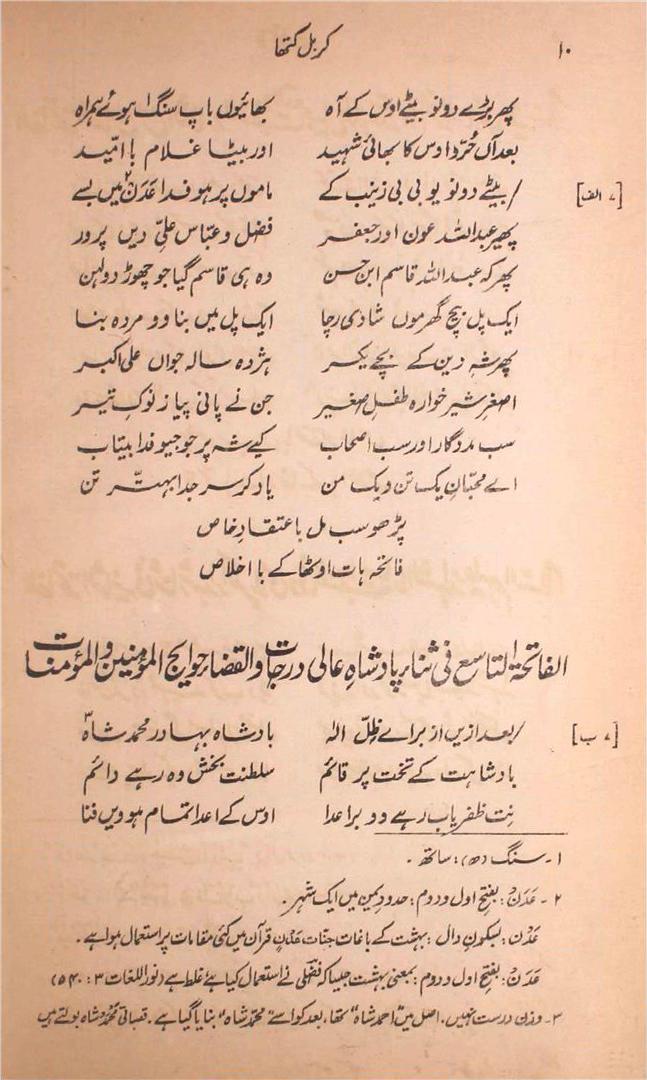 ۱۰ کربل کتھا
پھر بڑے دونو بیٹے اوس کے آہ بھائیوں باپ سنگ۱ ہوئے ہمراہ
بعد آں حُر د اوس کا بھائی شہید اور بیٹا غلام با امّید
[۷ الف] / بیٹے دونو یو بی بی زینب کے ماموں پر ہو فدا عَدَنْ۲ میں بسے
پھیر عبداللہ عون اور جعفر فضل و عبّاس علیؑ دیں پرور
پھر کہ عبداللہ قاسم ابن حسن وہ ہی قاسم گیا جو چھوڑ دولہن
ایک پل بیچ گھر موں شادی رچا ایک پل میں بنا وو مردہ بنا
پھر شہِ دین کے بچے یکسر ہژدہ سالہ جواں علی اکبر
اصغرِ شیر خوارہ طفلِ صغیر جن نے پانی پیا ز نوکِ تیر
سب مددگار اور سب اصحاب کیے شہ پر جو جیو فدا بیتاب
اے محبّانِ یک تن و یک من یاد کر سر جدا بہتّر تن
پڑھو سب مل با عتقادِ خاص
فاتحہ ہات اوٹھا کے با اخلاص
الفاتحۃ التاسع فی ثناء پادشاہِ عالی درجات والقضاء حوایج المؤمنین والمؤمنات
[۷ ب] / بعد ازیں از براے ظِلّ الٰہ بادشاہ بہادر محمد شاہ۳
بادشاہت کے تخت پر قائم سلطنت بخش وہ رہے دائم
نِت ظفریاب رہے وو بر اعدا اوس کے اعدا تمام ہوویں فنا
۱۔ سنگ (ھ): ساتھ۔
۲۔ عَدَنْ: بفتحِ اول و دوم: حدودِ یمن میں ایک شہر۔
عَدْن: بسکونِ دال: بہشت کے باغات جنّات عَدْنٍ قرآن میں کئی مقامات پر استعمال ہوا ہے۔
عَدَنْ: بفتحِ اول و دوم: بمعنی بہشت جیسا کہ فضلی نے استعمال کیا ہے غلط ہے (نور اللغات ۳: ۵۴۰)
۳۔ وزن درست نہیں، اصل میں "احمد شاہ" تھا، بعد کو اسے "محمّد شاہ" بنایا گیا ہے۔ قصباتی محمُّد شاہ بولتے ہیں